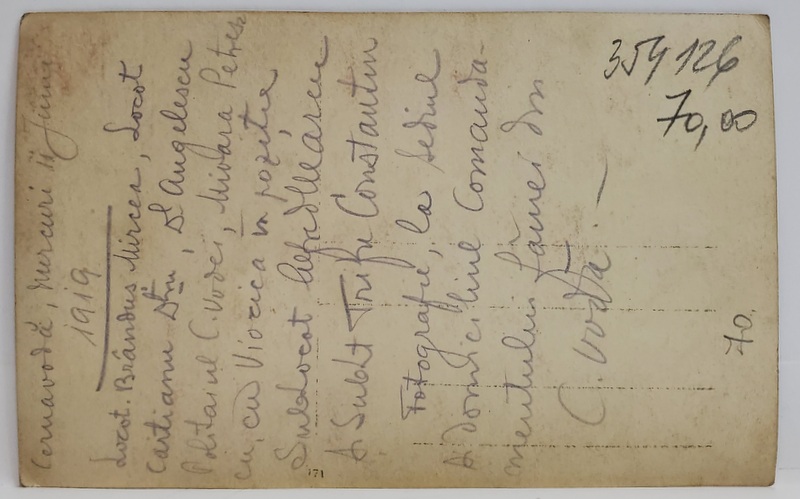 Cernavodă, Mercuri 11 Junie
1919
Locot. Brândus Mircea, Locot
Cartianu Dtru, Dl Angelescu
Politaiul C. Vodei, Mioara Petres
cu, cu Viorica în pozitie
Sublocot
Si Sublt Trifu Constantin
Fotografie, la Sediul
Si Domiciliul Comanda-
mentului Gărei din
C. Vodă. —
354126
70,00
70.
171